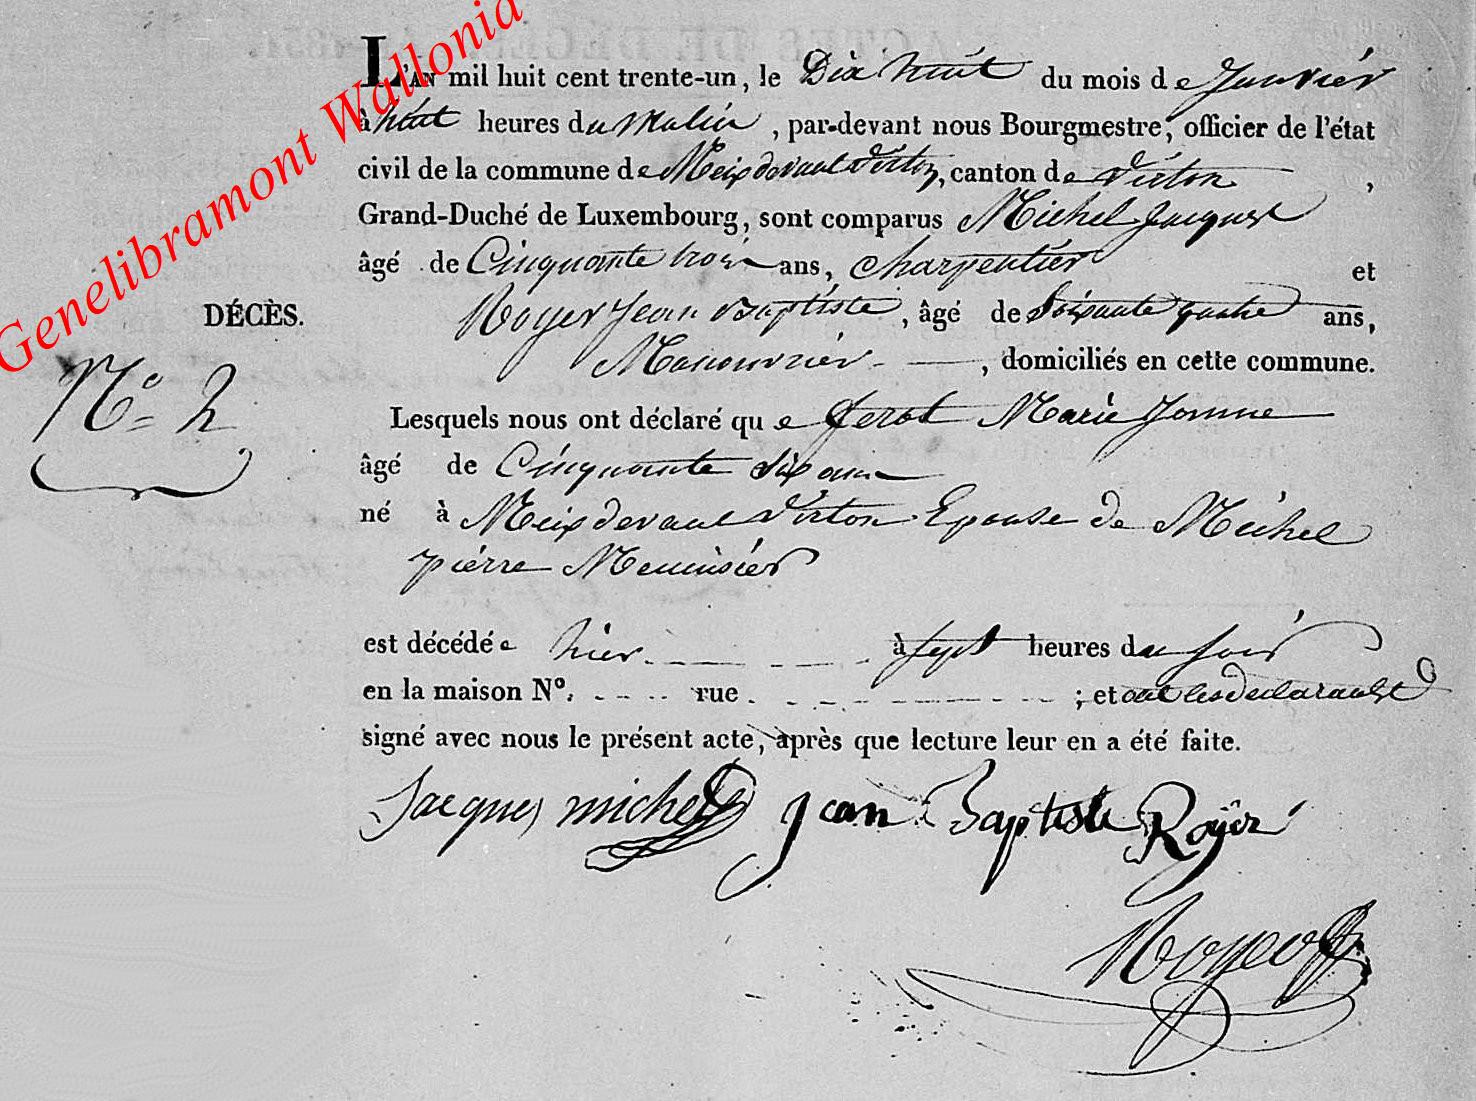 Genelibramont Wallonia
L'AN mil huit cent trente-un, le Dix huit du mois de Janvier
à huit heures du Matin, par-devant nous Bourgmestre, officier de l'état
civil de la commune de Meix devant Virton, canton de Virton,
Grand-Duché de Luxembourg, sont comparus Michel Jacques
âgé de Cinquante trois ans, Charpentier et
DÉCÈS.
Royer Jean Baptiste, âgé de Soixante quatre ans,
Manouvrier, domiciliés en cette commune.
N° 2
Lesquels nous ont déclaré que Marie Jeanne
âgé de Cinquante six ans
né à Meix devant Virton Epouse de Michel
pierre Menuisier
est décédée hier à sept heures du soir
en la maison N°. rue ; et ont les declarants
signé avec nous le présent acte, après que lecture leur en a été faite.
Jacques michel Jean Baptiste Royer
Royer